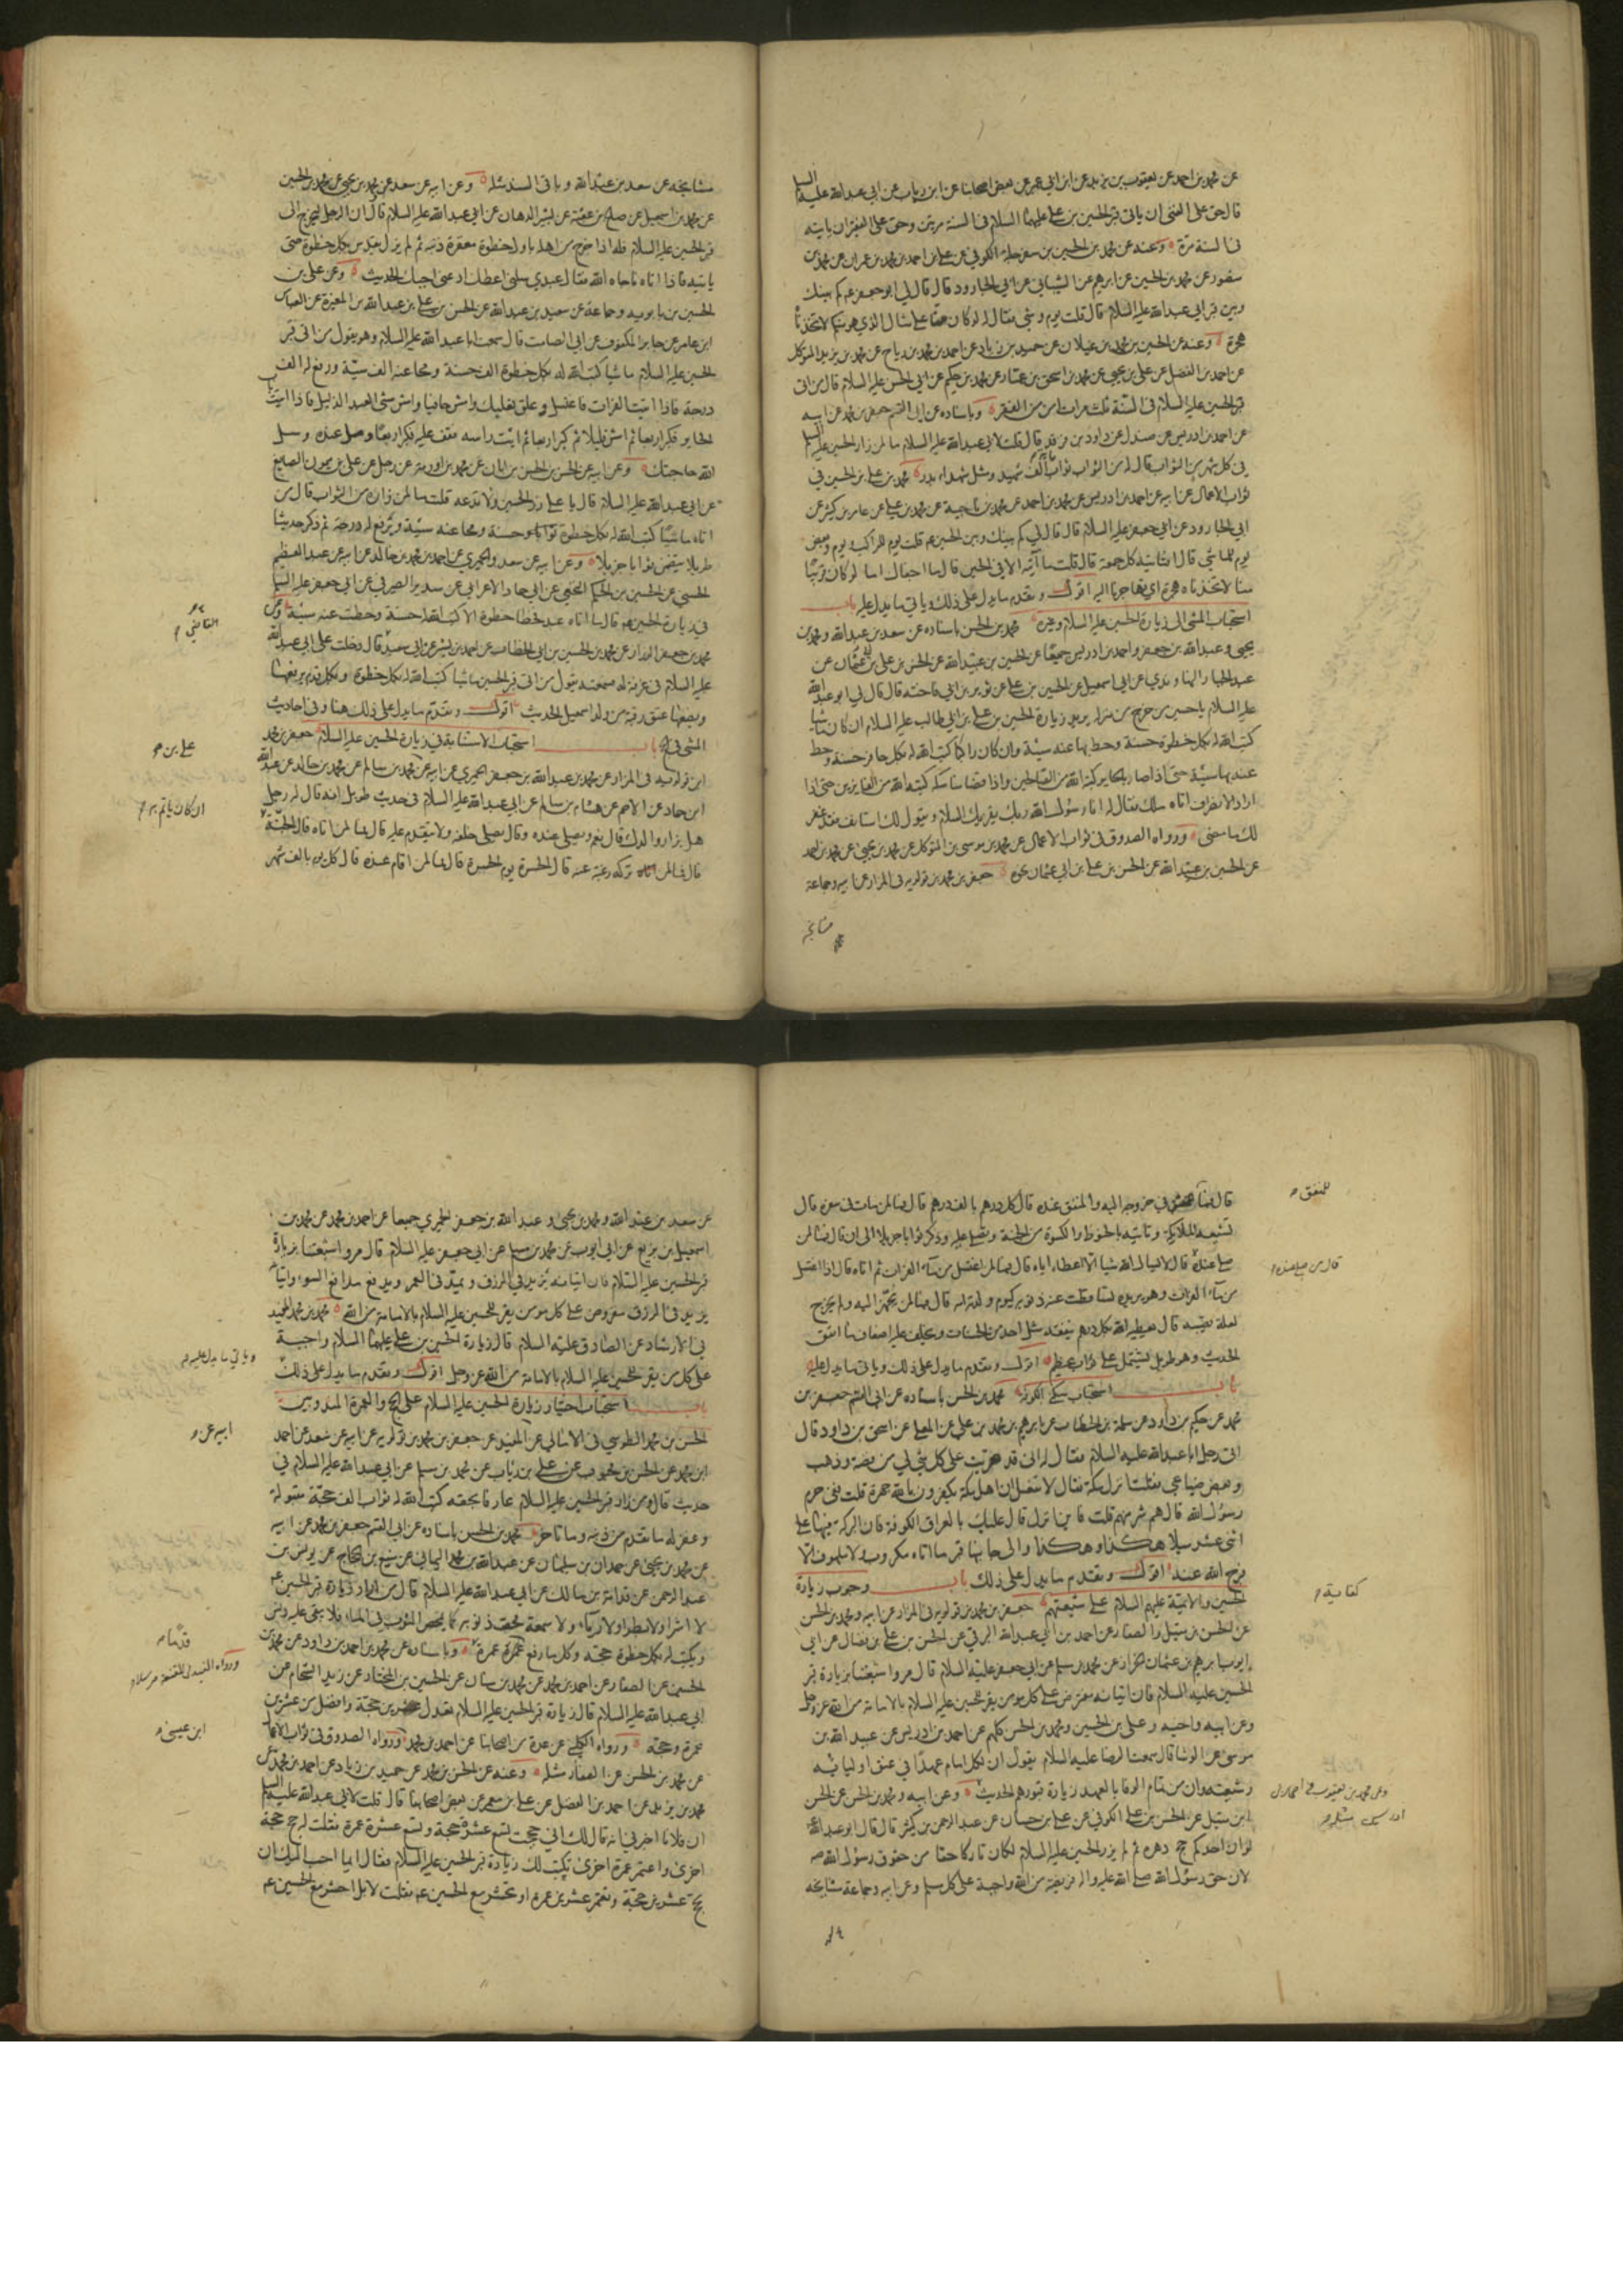 عن محمد بن احمد عن يعقوب بن يزيد عن ابن ابي عمير عن بعض اصحابنا عن ابن رياب عن ابي عبد الله عليه السلام
قال حق على الغني ان ياتي قبر الحسين بن علي عليهما السلام في السنة مرتين وحق على الفقير ان ياتيه
في السنة مرة وعنه عن محمد بن الحسين بن سفرجلة الكوفي عن علي بن احمد بن محمد بن عمران عن محمد بن
منصور عن محمد بن الحسين عن ابرهيم عن الشيباني عن ابي الجارود قال قال لي ابو جعفر ع كم بينك
وبين قبر ابي عبد الله عليه السلام قال قلت يوم وشي فقال له لو كان منا على مثال الذي هو منكم لاتخذناه
هجرة وعنه عن الحسين بن محمد بن علان عن حميد بن زياد عن احمد بن محمد بن رياح عن محمد بن يزيد المتوكل
عن احمد بن الفضل عن علي بن يحيى عن محمد بن اسحق بن عمار عن محمد بن حكيم عن ابي الحسن عليه السلام قال من اتى
قبر الحسين عليه السلام في السنة ثلث مرات امن من الفقر وباسناده عن ابي القسم جعفر بن محمد عن ابيه
عن احمد بن ادريس عن صندل عن داود بن فرقد قال قلت لابي عبد الله عليه السلام ما لمن زار الحسين عليه السلام
في كل شهر من الثواب قال له من الثواب ثواب مائة الف شهيد ومثل شهداء بدر محمد بن علي بن الحسين في
ثواب الاعمال عن ابيه عن احمد بن ادريس عن محمد بن احمد عن محمد بن ناجية عن محمد بن علي عن عامر بن كثير عن
ابي الجارود عن ابي جعفر عليه السلام قال قال لي كم بينك وبين الحسين ع قلت يوم للراكب ويوم وبعض
يوم للماشي قال افتاتيه كل جمعة قال قلت ما آتيه الا في الحين قال ما اجفاك اما لو كان قريبا
منا لاتخذناه هجرة اي نهاجرنا اليه اقول وتقدم ما يدل على ذلك وياتي ما يدل عليه باب
استحباب المشي الى زيارة الحسين عليه السلام وغيره محمد بن الحسن باسناده عن سعد بن عبد الله ومحمد بن
يحيى وعبد الله بن جعفر واحمد بن ادريس جميعا عن الحسين بن عبيد الله عن الحسن بن علي بن عثمان عن
عبد الجبار النهاوندي عن ابي اسمعيل عن الحسين بن علي عن ثوير بن ابي فاخته قال قال لي ابو عبد الله
عليه السلام يا حسين من خرج من منزله يريد زيارة الحسين بن علي بن ابي طالب عليه السلام ان كان ماشيا
كتب الله له بكل خطوة حسنة وحط بها عنه سيئة وان كان راكبا كتب الله له بكل حافر حسنة وحط
عنه بها سيئة حتى اذا صار بالحاير كتبه الله من الصالحين واذا قضى مناسكه كتبه الله من الفايزين حتى اذا
اراد الانصراف اتاه ملك فقال له انا رسول الله ربك يقريك السلام ويقول لك استانف فقد غفر
لك ما مضى ورواه الصدوق في ثواب الاعمال عن محمد بن موسى بن المتوكل عن محمد بن يحيى عن محمد بن احمد
عن الحسين بن عبيد الله عن الحسن بن علي بن ابي عثمان نحوه جعفر بن محمد بن قولويه في المزار عن ابيه وجماعة
مشايخه
مشايخه عن سعد بن عبد الله وباقي السند مثله وعن ابيه عن سعد عن محمد بن يحيى عن محمد بن الحسين
عن محمد بن اسمعيل عن صلح بن عقبة عن بشير الدهان عن ابي عبد الله عليه السلام قال ان الرجل ليخرج الى
قبر الحسين عليه السلام فله اذا خرج من اهله باول خطوة مغفرة ذنبه ثم لم يزل يقدس بكل خطوة حتى
ياتيه فاذا اتاه ناجاه الله فقال عبدي سلني اعطك ادعني اجبك الحديث وعن علي بن
الحسين بن بابويه وجماعة عن سعد بن عبد الله عن الحسن بن علي بن عبد الله بن المغيرة عن العباس
ابن عامر عن جابر المكفوف عن ابي الصامت قال سمعت ابا عبد الله عليه السلام وهو يقول من اتى قبر
الحسين عليه السلام ماشيا كتب الله له بكل خطوة الف حسنة ومحا عنه الف سيئة ورفع له الف
درجة فاذا اتيت الفرات فاغتسل وعلق نعليك وامش حافيا وامش مشي العبد الذليل فاذا اتيت باب
الحاير فكبر اربعا ثم امش قليلا ثم كبر اربعا ثم ايت راسه فقف عليه فكبر اربعا وصل عنده وسل
الله حاجتك وعن ابيه عن الحسن بن الحسن بن ابان عن محمد بن اورمة عن رجل عن علي بن ميمون الصايغ
عن ابي عبد الله عليه السلام قال يا علي زر الحسين ولا تدعه قلت ما لمن زاره من الثواب قال من
اتاه ماشيا كتب الله له بكل خطوة حسنة ومحا عنه سيئة وترفع له درجة ثم ذكر حديثا
طويلا يتضمن ثوابا جزيلا وعن ابيه عن سعد والحميري عن احمد بن محمد بن خالد عن ابيه عن عبد العظيم
الحسني عن الحسين بن الحكم النخعي عن ابي حماد الاعرابي عن سدير الصيرفي عن ابي جعفر عليه السلام
في زيارة الحسين ع قال ما اتاه عبد فخطا خطوة الا كتب الله له حسنة وحطت عنه سيئة وعن
محمد بن جعفر الرزاز عن محمد بن الحسين بن ابي الخطاب عن احمد بن بشير عن ابي سعيد قال دخلت على ابي عبد الله
عليه السلام في غرفة له فسمعته يقول من اتى قبر الحسين ماشيا كتب الله له بكل خطوة وبكل قدم يرفعها
ويضعها عتق رقبة من ولد اسمعيل الحديث اقول وتقدم ما يدل على ذلك هنا وفي احاديث
المشي في الحج باب استحباب الاستنابة في زيارة الحسين عليه السلام جعفر بن محمد
ابن قولويه في المزار عن محمد بن عبد الله بن جعفر الحميري عن ابيه عن محمد بن سالم عن محمد بن خالد عن عبد الله
ابن حماد عن الاصم عن هشام بن سالم عن ابي عبد الله عليه السلام في حديث طويل انه قال له رجل
هل يزار والدك قال نعم ويصلى عنده وقال يصلى خلفه ولا يتقدم عليه قال فما لمن اتاه قال الجنة
قال فما لمن تركه رغبة عنه قال الحسرة يوم الحسرة قال فما لمن اقام عنده قال كل يوم بالف شهر
علي بن
ان كان ياتم به
قال فما للمنفق في خروجه اليه والمنفق عنده قال كل درهم بالف درهم قال فما لمن مات في سفره قال
تشيعه الملايكة وتاتيه بالحنوط والكسوة من الجنة وتصلي عليه وذكر ثوابا جزيلا الى ان قال فما لمن
صلى عنده قال لا يسال الله شيا الا اعطاه اياه قال فما لمن اغتسل من ماء الفرات ثم اتاه قال اذا اغتسل
من ماء الفرات وهو يريده تساقطت عنه ذنوبه كيوم ولدته امه قال فما لمن يجهز اليه ولم يخرج
لعلة تصيبه قال يعطيه الله بكل درهم ينفقه مثل احد من الحسنات ويخلف عليه اضعاف ما انفق
الحديث وهو طويل يشتمل على ثواب عظيم اقول وتقدم ما يدل على ذلك وياتي ما يدل عليه
باب استحباب سكنى الكوفة محمد بن الحسن باسناده عن ابي القسم جعفر بن
محمد عن حكيم بن داود عن سلمة بن الخطاب عن ابرهيم بن محمد بن علي عن المعلى عن اسحق بن داود قال
اتى رجل ابا عبد الله عليه السلام فقال له اني قد ضربت على كل شي لي من فضة وذهب
وبعض ضياعي فقلت انزل مكة فقال لا تفعل ان اهل مكة يكفرون بالله جهرة قلت ففي حرم
رسول الله قال هم شر منهم قلت فاين انزل قال عليك بالعراق الكوفة فان البركة منها على
اثني عشر ميلا هكذا وهكذا والى جانبها قبر ما اتاه مكروب ولا ملهوف الا
فرج الله عنه اقول وتقدم ما يدل على ذلك باب وجوب زيارة
الحسين والائمة عليهم السلام على شيعتهم جعفر بن محمد بن قولويه في المزار عن ابيه ومحمد بن الحسن
عن الحسن بن متيل والصفار عن احمد بن ابي عبد الله البرقي عن الحسن بن علي بن فضال عن ابي
ايوب ابرهيم بن عثمان الخزاز عن محمد بن مسلم عن ابي جعفر عليه السلام قال مروا شيعتنا بزيارة قبر
الحسين عليه السلام فان اتيانه مفترض على كل مومن يقر للحسين عليه السلام بالامامة من الله عز وجل
وعن ابيه واخيه وعلي بن الحسين ومحمد بن الحسن كلهم عن احمد بن ادريس عن عبيد الله بن
موسى عن الوشا قال سمعت الرضا عليه السلام يقول ان لكل امام عهدا في عنق اوليائه
وشيعته وان من تمام الوفا بالعهد زيارة قبورهم الحديث وعن ابيه ومحمد بن الحسن عن الحسن
ابن متيل عن الحسن بن علي الكوفي عن علي بن حسان عن عبد الرحمن بن كثير قال قال ابو عبد الله
لو ان احدكم حج دهره ثم لم يزر الحسين عليه السلام لكان تاركا حقا من حقوق رسول الله ص
لان حق رسول الله صلى الله عليه واله فريضة من الله واجبة على كل مسلم وعن ابيه وجماعة مشايخه
للمنفق
قال من صلى عنده
عن سعد بن عبد الله ومحمد بن يحيى وعبد الله بن جعفر الحميري جميعا عن احمد بن محمد عن محمد بن
اسمعيل بن بزيع عن ابي ايوب عن محمد بن مسلم عن ابي جعفر عليه السلام قال مروا شيعتنا بزيارة
قبر الحسين عليه السلام فان اتيانه يزيد في الرزق ويمد في العمر ويدفع مدافع السوء واتيانه
يزيد في الرزق مفروض على كل مومن يقر للحسين عليه السلام بالامامة من الله محمد بن محمد المفيد
في الارشاد عن الصادق عليه السلام قال زيارة الحسين بن علي عليهما السلام واجبة
على كل من يقر للحسين عليه السلام بالامامة من الله عز وجل اقول وتقدم ما يدل على ذلك
باب استحباب اختيار زيارة الحسين عليه السلام على الحج والعمرة المندوبين
الحسن بن محمد الطوسي في الامالي عن المفيد عن جعفر بن محمد بن قولويه عن ابيه عن سعد عن احمد
ابن محمد عن الحسن بن محبوب عن علي بن رئاب عن محمد بن مسلم عن ابي عبد الله عليه السلام في
حديث قال ومن زار قبر الحسين عليه السلام عارفا بحقه كتب الله له ثواب الف حجة مقبولة
وغفر له ما تقدم من ذنبه وما تاخر محمد بن الحسن باسناده عن ابي القسم جعفر بن محمد عن ابيه
عن محمد بن يحيى عن حمدان بن سليمان عن عبد الله بن محمد اليماني عن منيع بن الحجاج عن يونس بن
عبد الرحمن عن قدامة بن مالك عن ابي عبد الله عليه السلام قال من اراد زيارة قبر الحسين ع
لا اشرا ولا بطرا ولا رياء ولا سمعة محصت ذنوبه كما يمحص الثوب في الماء فلا يبقى عليه دنس
ويكتب له بكل خطوة حجة وكل ما رفع قدما عمرة وباسناده عن محمد بن احمد بن داود عن محمد بن
الحسن عن الصفار عن احمد بن محمد عن محمد بن سنان عن الحسين بن المختار عن زيد الشحام عن
ابي عبد الله عليه السلام قال زيارة قبر الحسين عليه السلام تعدل عشرين حجة وافضل من عشرين
عمرة وحجة ورواه الكليني عن عدة من اصحابنا عن احمد بن محمد ورواه الصدوق في ثواب الاعمال
عن محمد بن الحسن عن الصفار مثله وعنه عن الحسن بن محمد عن حميد بن زياد عن احمد بن محمد عن
محمد بن يزيد عن احمد بن الفضل عن علي بن معمر عن بعض اصحابنا قال قلت لابي عبد الله عليه السلام
ان فلانا اخبرني انه قال لك اني حججت تسع عشرة حجة وتسع عشرة عمرة فقلت له حج حجة
اخرى واعتمر عمرة اخرى تكتب لك زيارة قبر الحسين عليه السلام فقال ايما احب اليك ان
تحج عشرين حجة وتعتمر عشرين عمرة او تحشر مع الحسين ع فقلت لا بل احشر مع الحسين ع
وياتي ما يدل عليه
ابيه عن
قدما
ورواه المفيد في المقنعة مرسلا
ابن عيسى